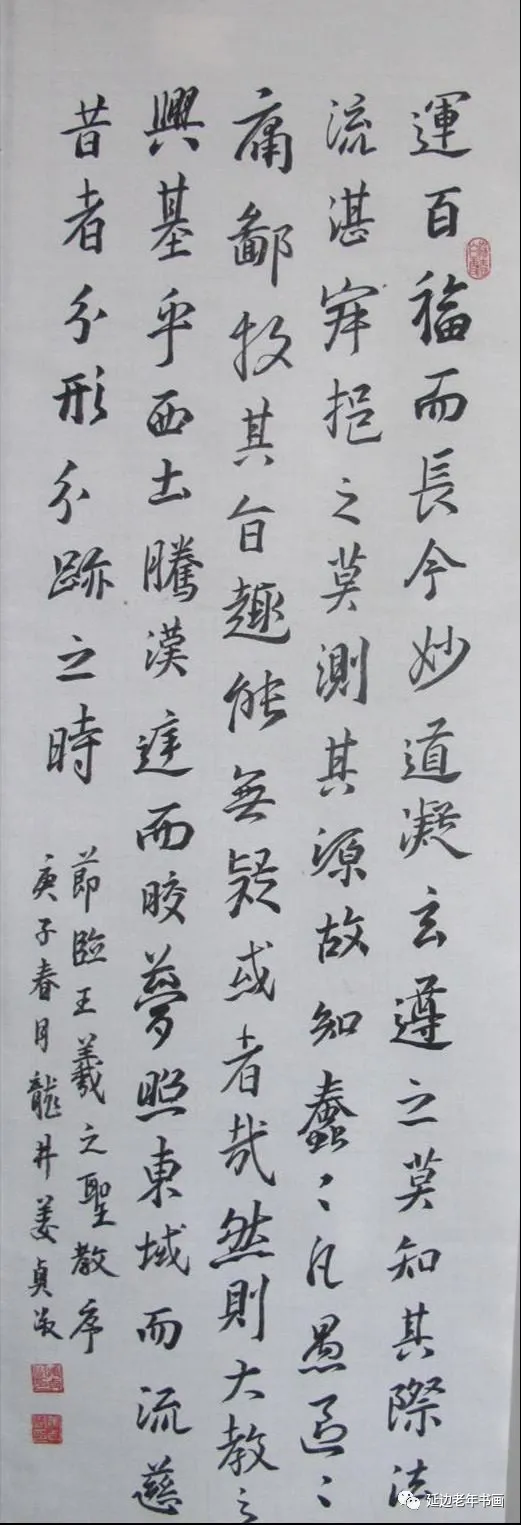 運百福而長今妙道凝玄遵之莫知其際法
流湛寂挹之莫測其源故知蠢〻凡愚區〻
庸鄙投其旨趣能無疑或者哉然則大教之
興基乎西土騰漢庭而皎夢照東域而流慈
昔者分形分跡之時
節臨王羲之聖教序
庚子春月龍井姜貞淑
延边老年书画